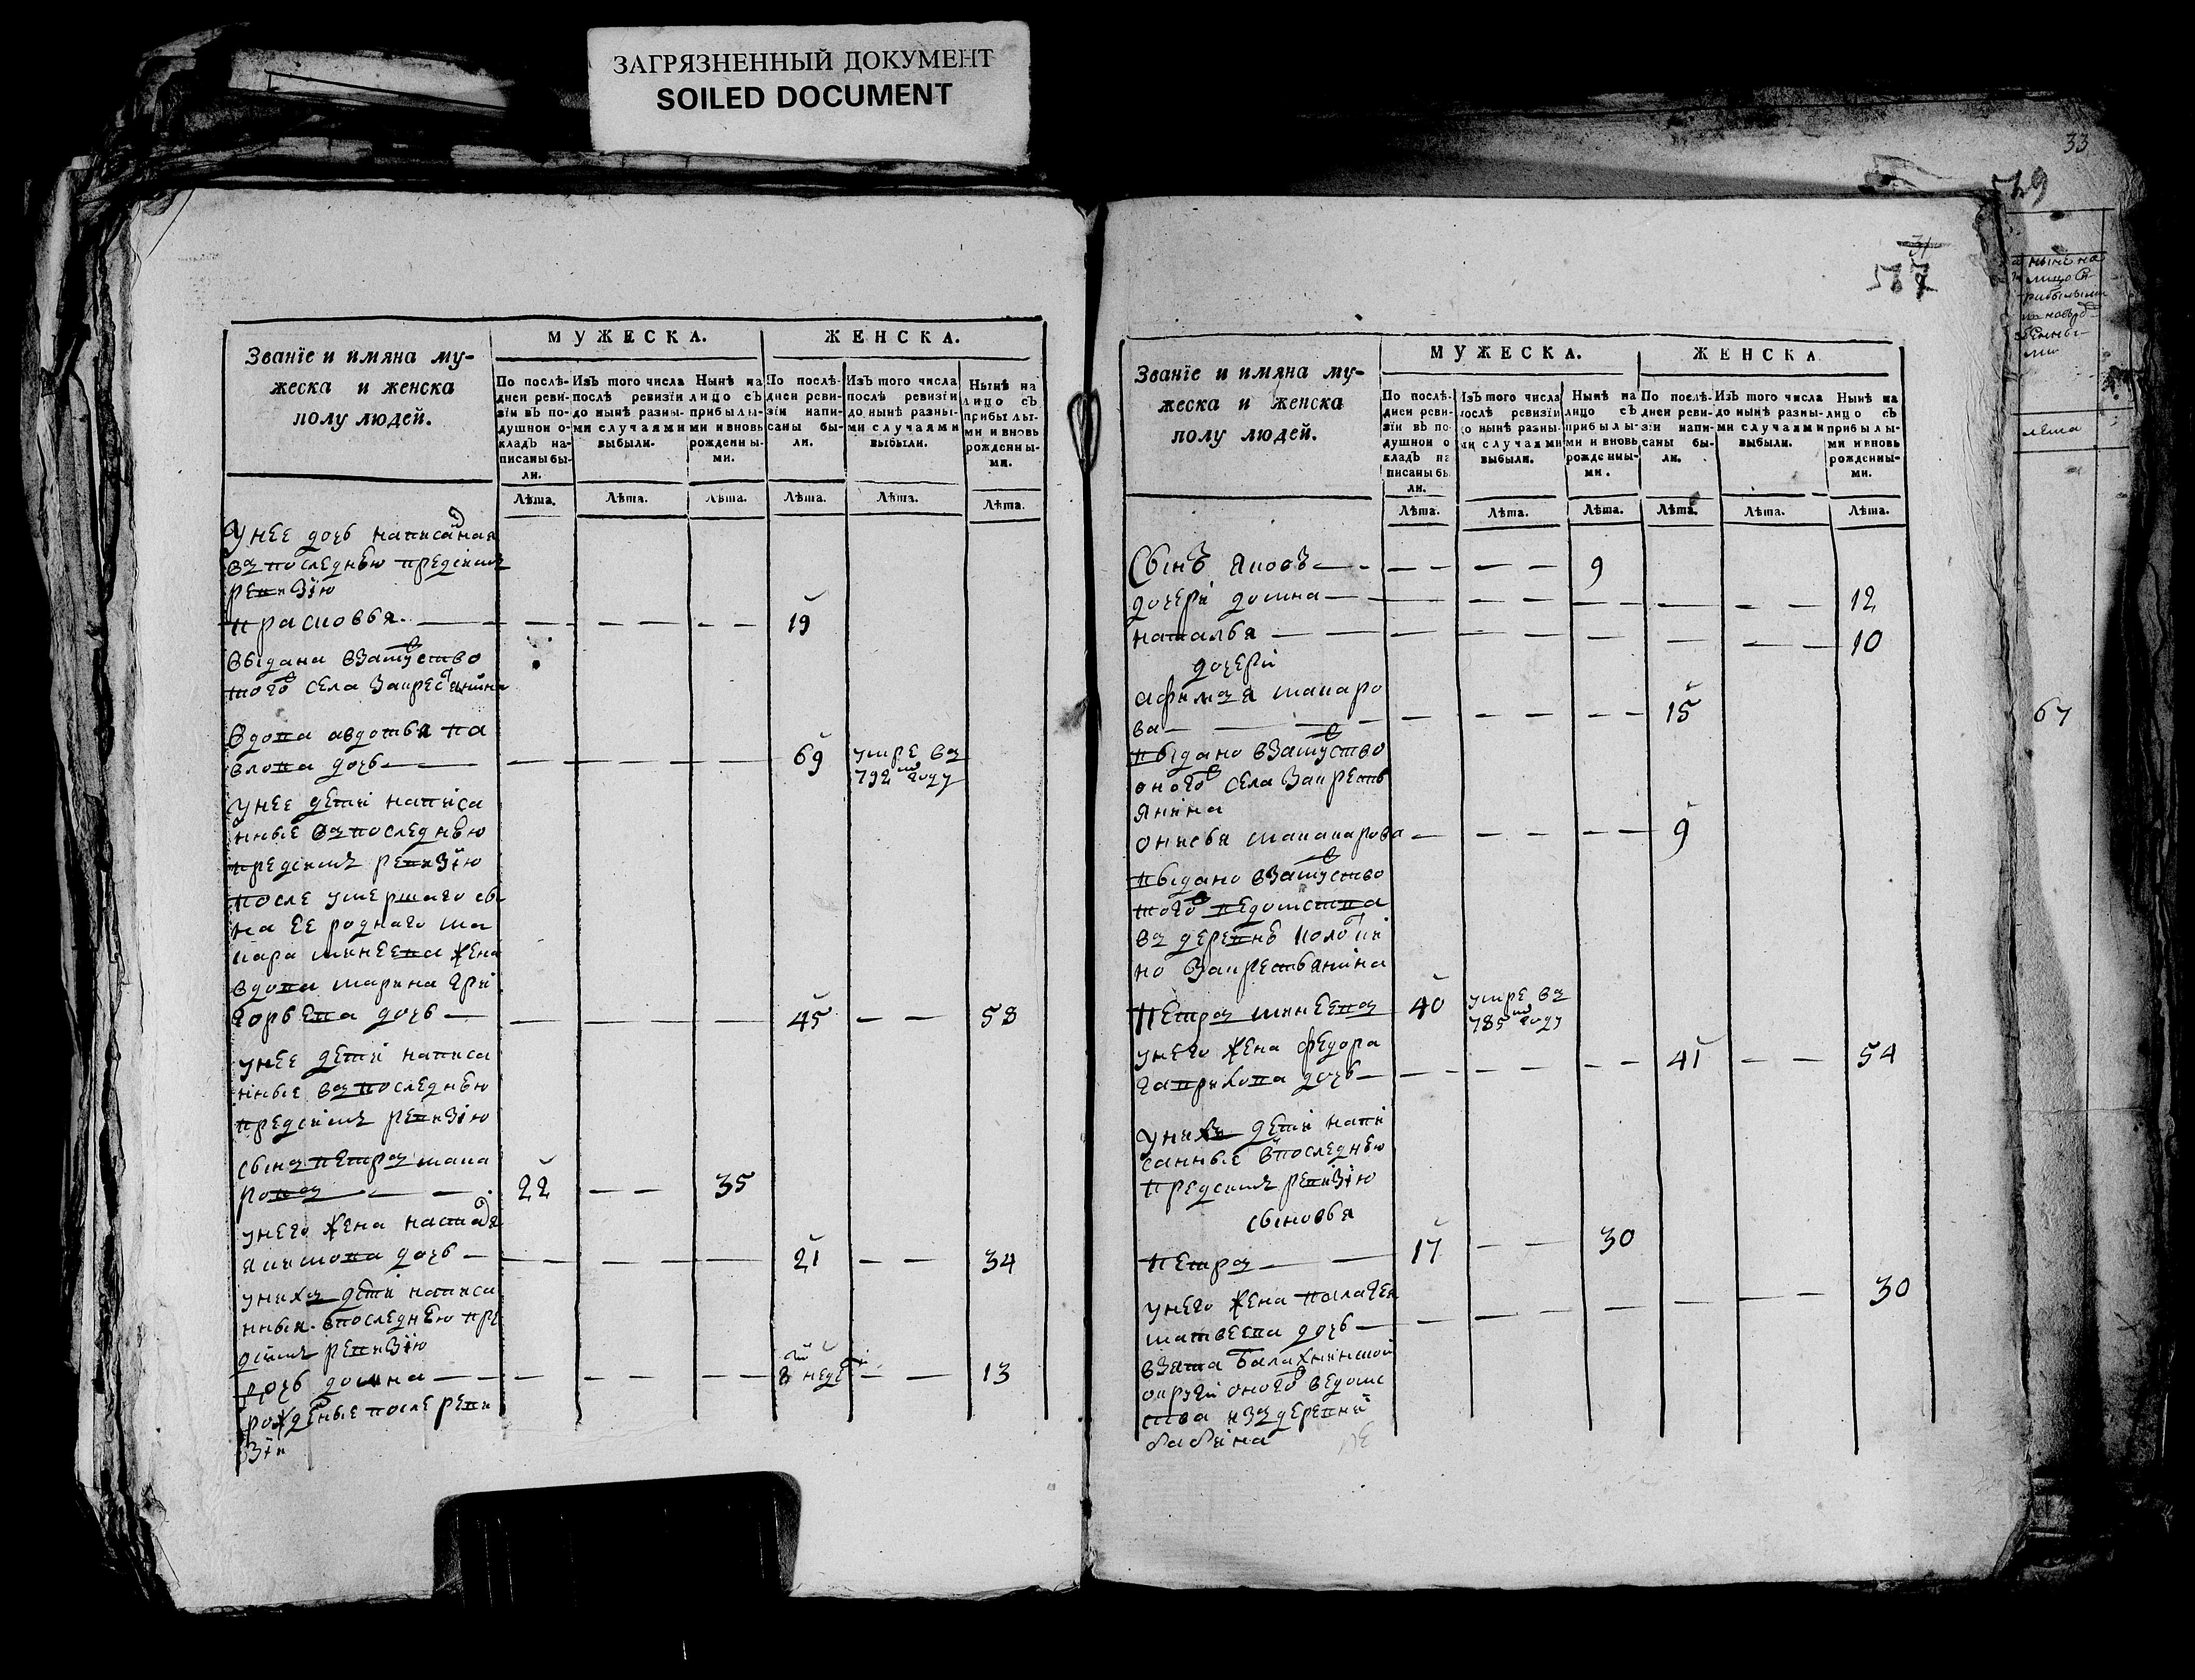 ЗАГРЯЗНЕННЫЙ ДОКУМЕНТ
SOILED DOCUMENT
33
Званїе и имяна му-
жеска и женска
полу людей.
МУЖЕСКА.
ЖЕНСКА.
По послѣ-
днеи реви-
зїи въ по-
душнои о-
кладъ на-
писаны бы-
ли.
Изъ того числа
послѣ ревизїи
до нынѣ разны-
ми случаями
выбыли.
Нынѣ на
лицо съ
прибылы-
ми и вновь
рожденны-
ми.
По послѣ-
днеи реви-
зїи напи-
саны бы-
ли.
Изъ того числа
послѣ ревизїи
до нынѣ разны-
ми случаями
выбыли.
Нынѣ на
лицо съ
прибылы-
ми и вновь
рожденны-
ми.
Лѣта. Лѣта. Лѣта. Лѣта. Лѣта. Лѣта.
У нее дочь написаная
въ последнею предсимъ
ревизїю
прасковья 19
выдана взамужство
того села закрестьянина
вдова авдотья па
влова дочь 69 умре въ
792м году
у нее дети написа
нные въ последнею
предсимъ ревизїю
после умершаго сы
на ее роднаго ма
кара минеева жена
вдова марина гри
горьева дочь 45 58
у нее дети написа
нные въ последнею
предсимъ ревизїю
сынъ петръ мака
ровъ 22 35
у него жена
дочь 21 34
у нихъ дети написа
нныя в последнею пре
дсимъ ревизїю
дочь домна 8 неде 13
рожденые после реви
зїи
577
Званїе и имяна му-
жеска и женска
полу людей.
МУЖЕСКА.
ЖЕНСКА
По послѣ-
днеи реви-
зїи въ по-
душнои о
кладъ на
писаны бы
ли.
Изъ того числа
послѣ ревизїи
до нынѣ разны-
ми случаями
выбыли.
Нынѣ на
лицо съ
прибылы-
ми и вновь
рожденны-
ми.
По послѣ-
днеи реви-
зїи напи-
саны бы-
ли.
Изъ того числа
до нынѣ разны-
ми случаями
выбыли.
Нынѣ на
лицо съ
прибылы-
ми и вновь
рожденны-
ми.
Лѣта. Лѣта. Лѣта. Лѣта. Лѣта. Лѣта.
Сынъ яковъ 9
дочери домна 12
наталья 10
дочери
афимья макаро
ва 15
выдано взамужство
оного села закресть
янина
онисья макарова 9
выдано взамужство
того ведомства
въ деревне
но закрестьянина
петръ минеевъ 40 умре въ
785м году
у него жена федора
гаврилова дочь 41 54
у нихъ дети напи
санные в последнею
предсимъ ревизїю
сыновья
петръ 17 30
у него жена палагея
матвеева дочь 30
взята балахнинской
округи оного ведомс
тва изъ деревни
бабкина
67